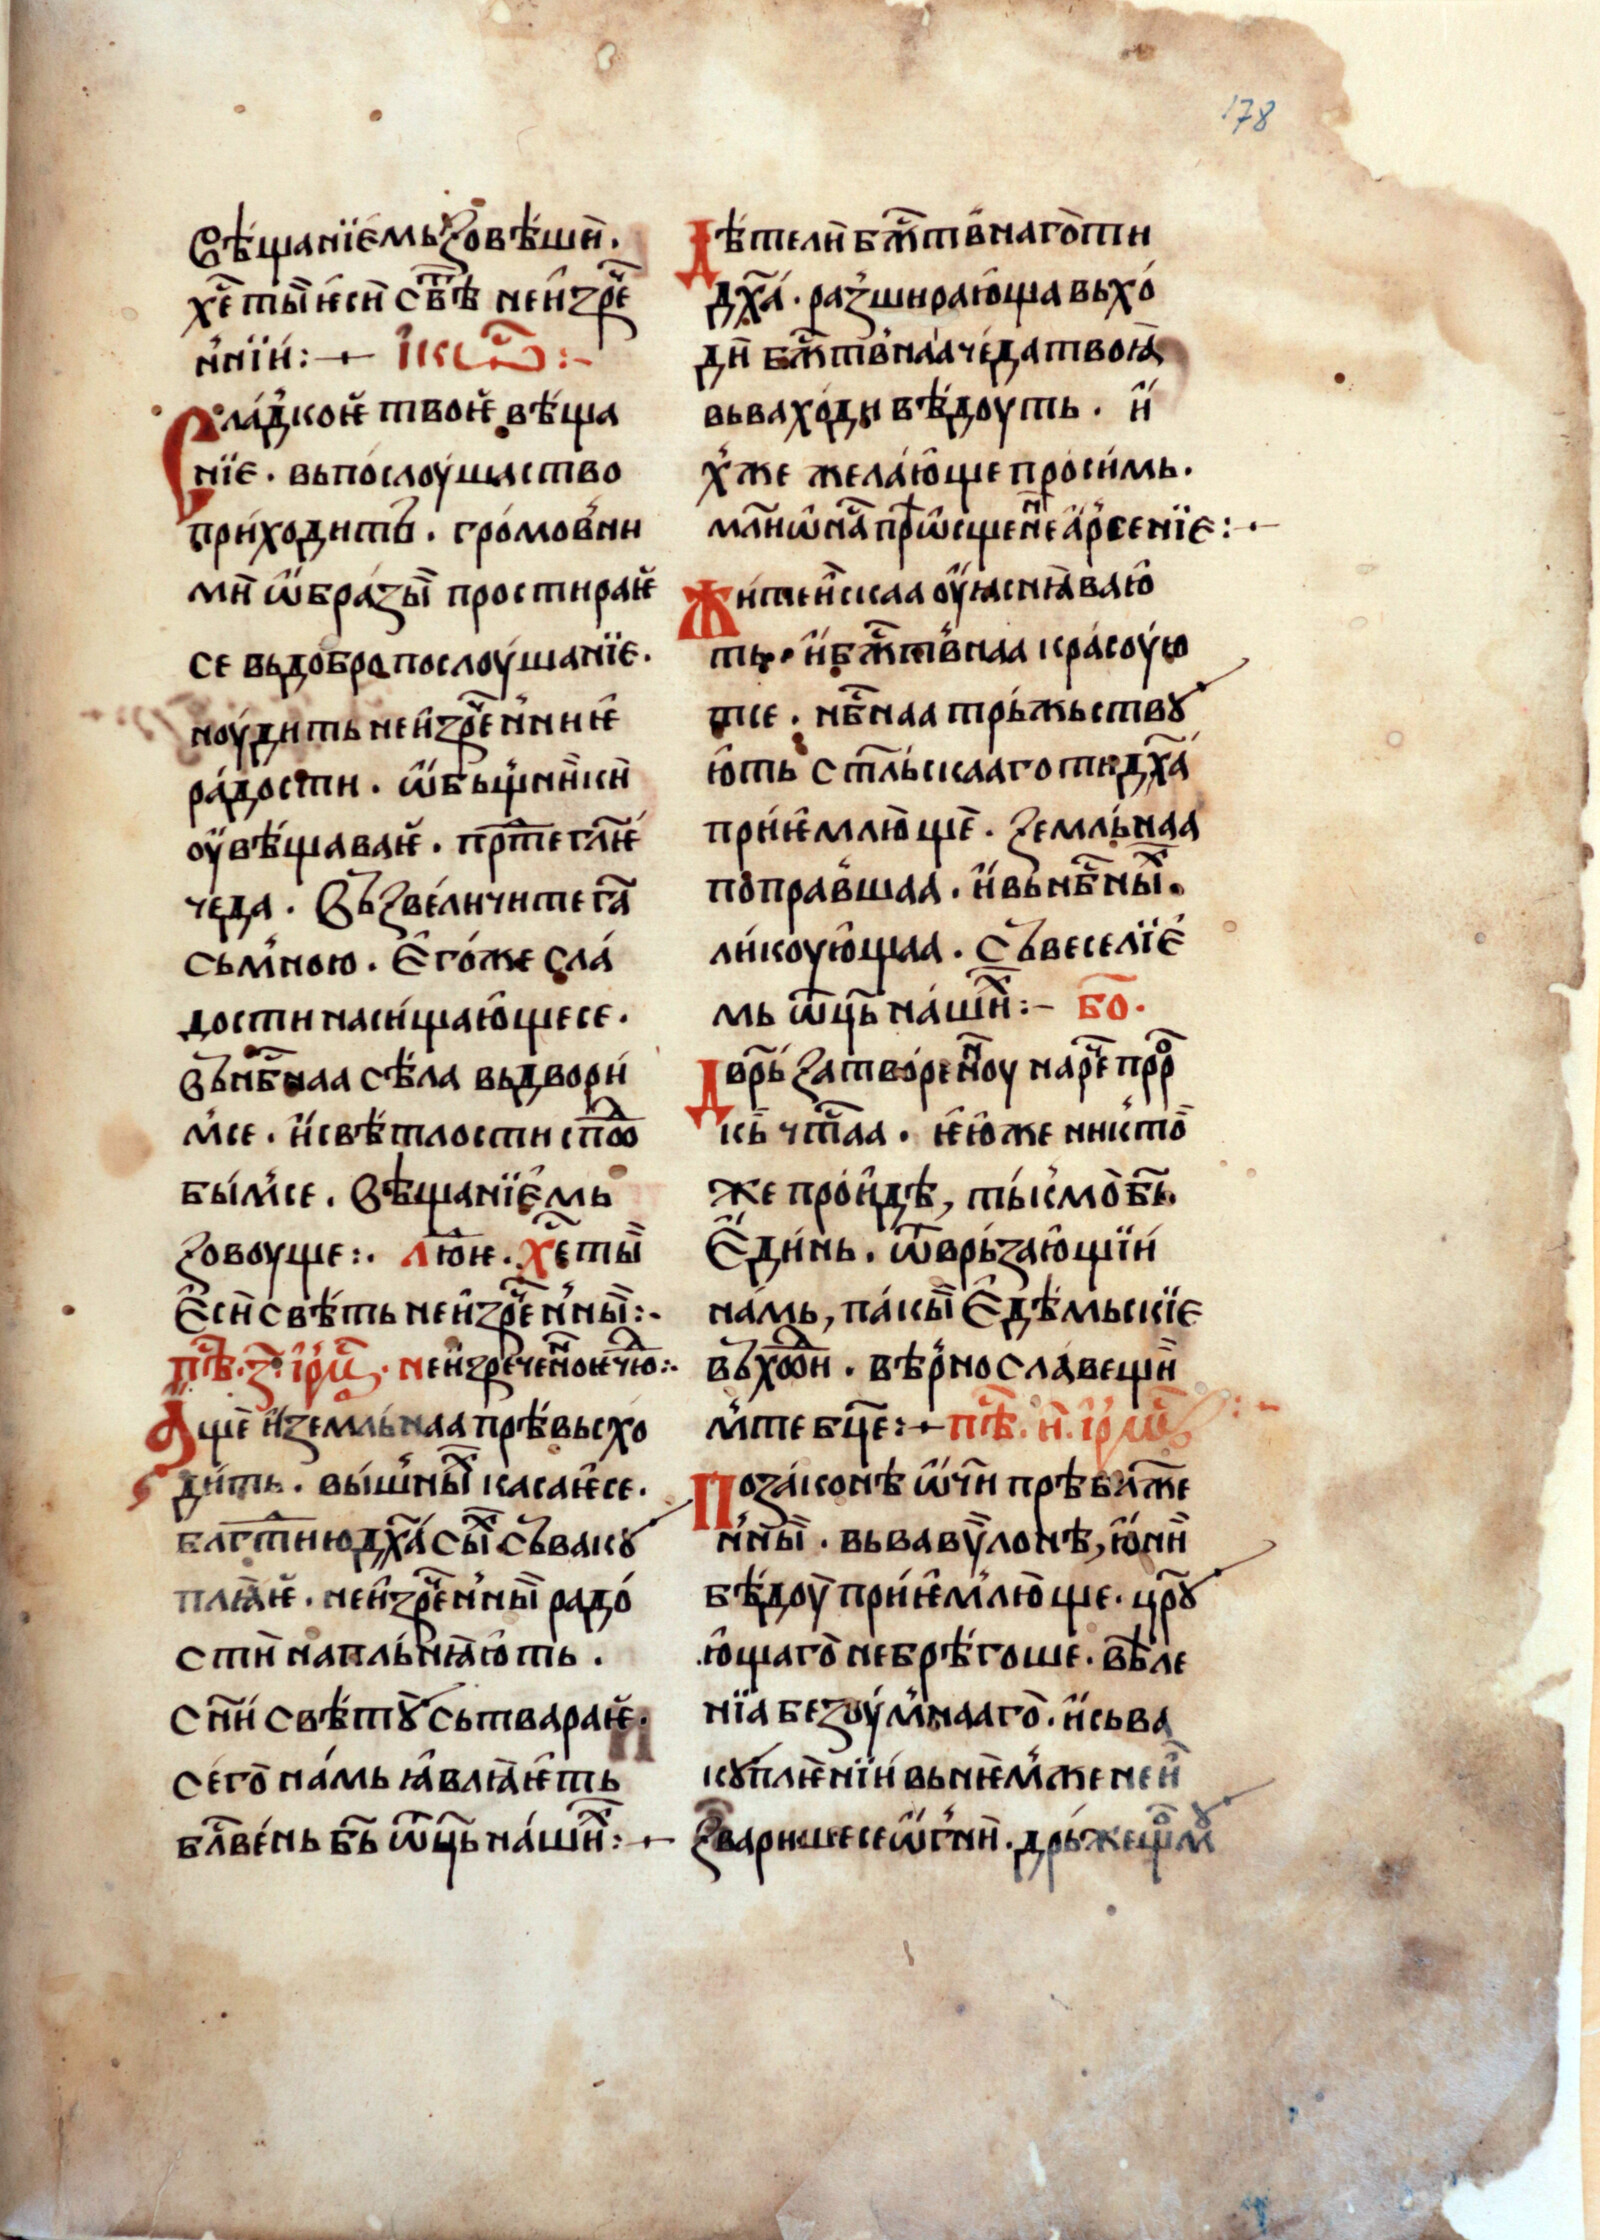 178
Вѣщанїемь зовѣщен҄.
хе҃ ты ѥси свѣ҃ неизре҃
н҆нїи:— їкѡ҃с:–
Сла́дкоѥ твоѥ вѣ́ща
нїе. вьпо́слоу́шаство
при́ходить. гро́мовни
ми ѡ҆бра́зы простираѥ
се вьдобро послоу́шанїе.
ноу́дить неизре҃н҆ниѥ
ра́дости. ѡ҆бьщ҆ники
оу҆вѣ́щаваѥ. пр҃тегл҃ѥ
чеда. Вьзве́личите га҃
сьм҆ною. Его́же сла́
дости наси́щаю҆щесе.
Вьнб҃наа сѣ́ла вьдвори́
м҆се. и҆свѣ́тлости спⷣо
бы́м҆се. Вѣщанїе҆мь
зовоуще:. лю҆ѥ. хе҃ ты
Еси свѣ́ть неизре҃н҆ны:.
пѣ҃. з҃. їрⷨ. неи҆зречен҆ноѥчⷣю:.
Аще и҆земль́наа прѣ́вьсхо
ди́ть. вы́ш҆ныⷯ касаѥ҆се.
блгⷭтию дх҃а́ сыⷯ сьвакꙋ
плꙗѥ. неи҆зре҃н҆ны радо́
сти напль́нꙗю҆ть.
Сни́ свѣ́тꙋ сьтвараѥ.
Се́го на́мь ꙗ҆влꙗѥ҆ть
бл҃ве́нь бь҃ ѡц҃ь на́шиⷯ:—
Дѣ́тели бж҃твнаго́ти
дх҃а́. раз҆шираю҆ща вьхо́
ди бж҃твнаа че́да твоꙗ
вьваходи вѣ́доуть. и҆
х҆же жела́ю҆ще проси́мь.
мл҃и ѡ҆на҃ прⷪѡсщен҆не а҆р҆сенїе:—
Жи́теи҆скаа оу҆ꙗснꙗ҆ваю҆
ть. и҆бж҃твнаа кра́соую
тсе. нб҃наа трь́жьствꙋ
ю҆ть стл҃ьскаа готидх҃а́
при́ѥмлю҆ще. земль́наа
поправ҆шаа. и҆вьнб҃ныⷯ.
ли́коую҆щаа. Сьвеселїе҆
мь ѡц҃ь на́шиⷯ:– бо҃.
Дврь҃ затво́рен҆ноу наре҃ прⷪр
кь чтⷭаа. ѥ҆ю́же никто
же прои́дѣ, ты́кмо бь҃.
Еди́нь. ѿврь́заю҆щїи
на́мь, па́кы Едѣ́мьскїе
вьхⷪди. вѣ́р҆но сла́вещи
м҆те бц҃е:— пѣ҃. и҃. їрⷨ
По за́конѣ ѡ҆чи прѣблаже
н҆ны. вьвавѷлонѣ, ю҆ни
бѣ́доу при́ѥмлю҆ще. цр҃ꙋ
ю҆щаго небрѣ́гоше. вⷧѣле
нїа безоу́м҆нааго. и҆сьва
кꙋплѥ́нїи вьнѥм҆же не и҆
зваришесе ѡ҆гни. дрь́жещⷪмꙋ